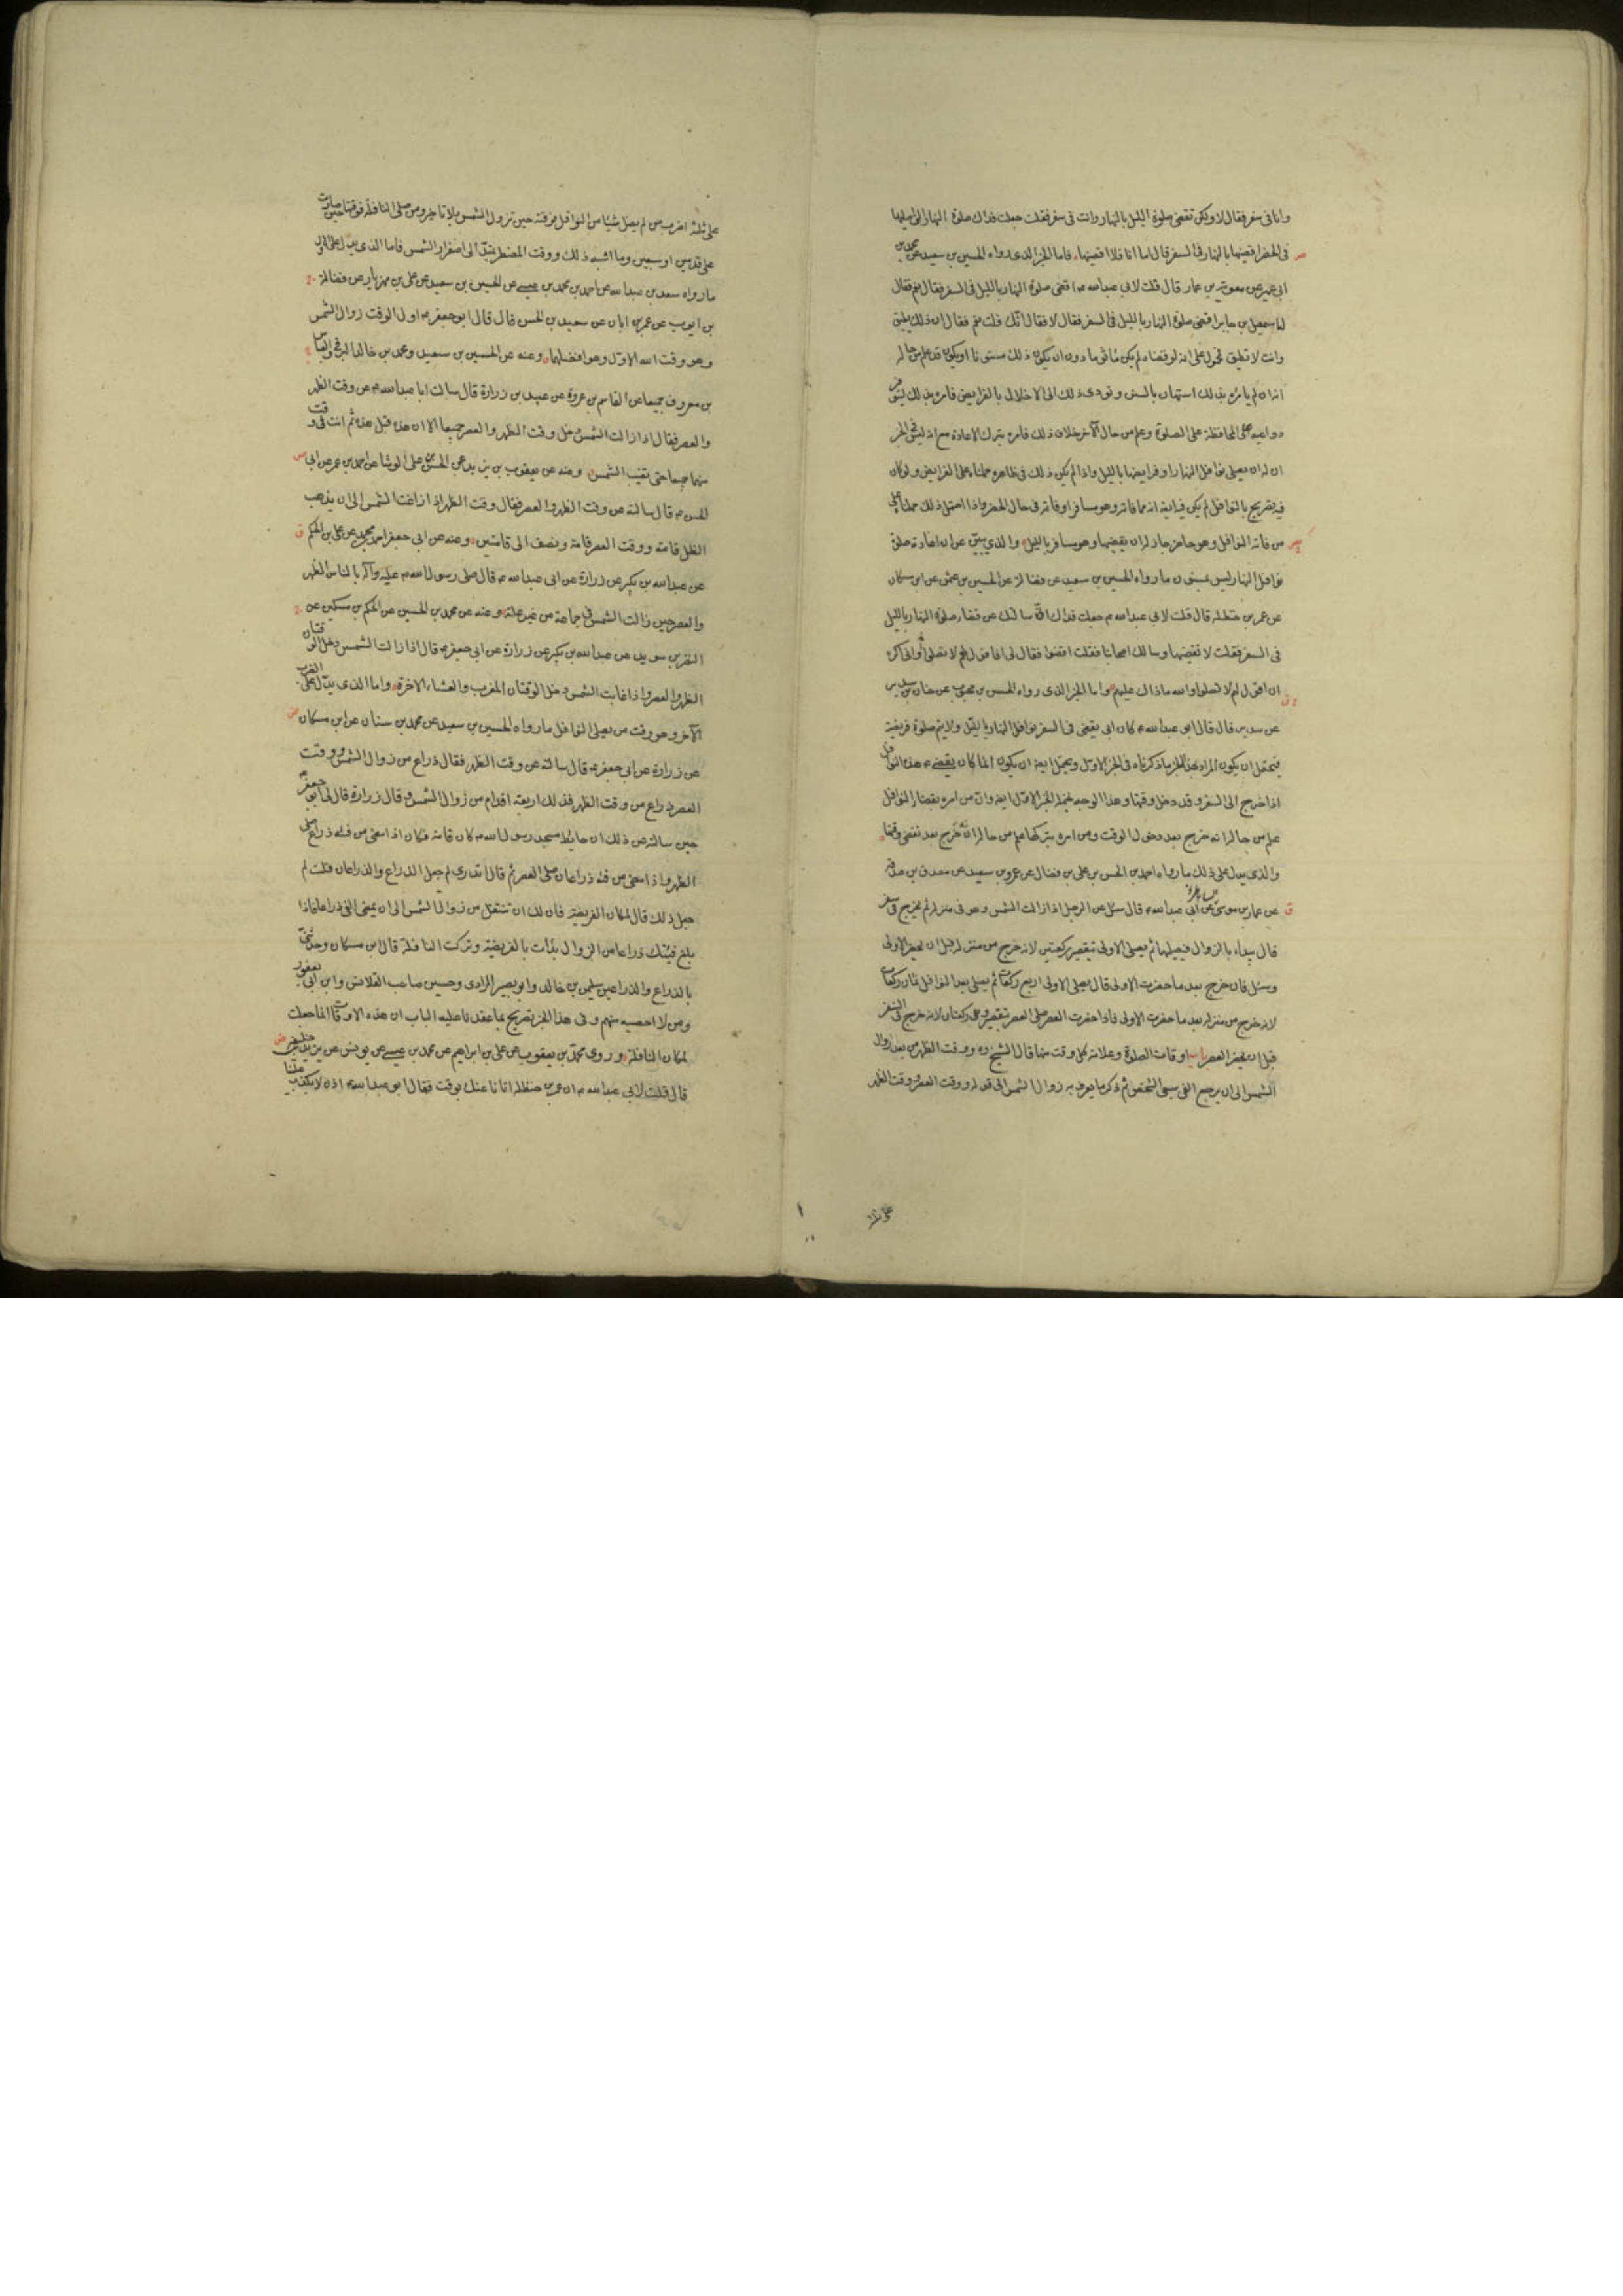 وانا فى سفر فقال لا ولكن تقضى صلوة الليل بالنهار وانت فى سفر فقلت جعلت فداك صلوة النهار التى اصليها
فى الحضر اقضيها بالنهار فى السفر قال اما انا فلا اقضيها فاما الخبر الذى رواه الحسين بن سعيد عن محمد بن
ابى عمير عن معوية بن عمار قال قلت لابى عبد الله ع اقضى صلوة النهار بالليل فى السفر فقال نعم فقال
له اسمعيل بن جابر اقضى صلوة النهار بالليل فى السفر فقال لا فقال انك قلت نعم فقال ان ذلك يطيق
وانت لا تطيق فمحمول على انه لو قضاه لم يكن مأثوما دون ان يكون ذلك مسنونا او يكون قد علم من حاله
انه ان لم يامره بذلك استهان بالسنن وتودى ذلك الى الاخلال بالفرايض فامره بذلك ليتوفر
دواعيه على المحافظة على الصلوة وعلم من حال الآخر خلاف ذلك فامره بترك الاعادة مع انه ليس فى الخبر
ان له ان يصلى نوافل النهار او فرايضها بالليل واذا لم يكن ذلك فى ظاهره حملناه على الفرايض ولو كان
فيه تصريح بالنوافل لم يكن فيه ايضا انه مما فاته وهو مسافر او فاته فى حال الحضر واذا احتمل ذلك حملناه على
من فاته النوافل وهو حاضر جاز له ان يقضيها وهو مسافر بالليل والذي يبين عن ان اعادة صلوة
نوافل النهار ليس بمسنون ما رواه الحسين بن سعيد عن فضالة عن الحسين بن عثمن عن ابن مسكان
عن عمر بن حنظلة قال قلت لابى عبد الله ع جعلت فداك انى سالتك عن قضاء صلوة النهار بالليل
فى السفر فقلت لا تقضيها وسالك اصحابنا فقلت اقضوا فقال لى افاقول لهم لا تصلوا وانى اكره
ان اقول لهم لا تصلوا والله ما ذاك عليهم واما الخبر الذى رواه الحسن بن محبوب عن حنان بن سدير
عن سدير قال قال ابو عبد الله ع كان ابى يقضى فى السفر نوافل النهار بالليل ولا يتم صلوة فريضة
فيحتمل ان يكون المراد بهذا الخبر ما ذكرناه فى الخبر الاول ويحتمل ايضا ان يكون انما كان يقضى ع هذه النوافل
اذا خرج الى السفر وقد دخل وقتها وهذا الوجه يحتمله الخبر الاول ايضا وان من امره بقضاء النوافل
علم من حاله انه خرج بعد دخول الوقت ومن امره بتركها علم من حاله انه خرج بعد تقضى وقتها
والذى يدل على ذلك ما رواه احمد بن الحسن بن على بن فضال عن عمرو بن سعيد عن مصدق بن صدقة
عن عمار بن موسى الساباطى عن ابى عبد الله ع قال سئل عن الرجل اذا زالت الشمس وهو فى منزله ثم يخرج فى سفر
قال يبداء بالزوال فيصليها ثم يصلى الاولى بتقصير ركعتين لانه خرج من منزله قبل ان تحضر الاولى
وسئل فان خرج بعد ما حضرت الاولى قال يصلى الاولى اربع ركعات ثم يصلى بعد النوافل ثمان ركعات
لانه خرج من منزله بعد ما حضرت الاولى فاذا حضرت العصر صلى العصر بتقصير وهى ركعتان لانه خرج فى السفر
قبل ان تحضر العصر باب اوقات الصلوة وعلامة كل وقت منها قال الشيخ ره ووقت الظهر من بعد زوال
الشمس الى ان يرجع الفى سبعى الشخص ثم ذكر ما يعرف به زوال الشمس الى قوله ووقت العصر ووقت الظهر
على ثلثة اضرب من لم يصل شيئا من النوافل فوقته حين تزول الشمس بلا تاخير ومن صلى النافلة فوقتها حين صارت
على قدمين او سبعين وما اشبه ذلك ووقت المضطر يمتد الى اصفرار الشمس فاما الذى يدل على الاول
ما رواه سعد بن عبد الله عن احمد بن محمد بن عيسى عن الحسين بن سعيد عن على بن مهزيار عن فضالة
بن ايوب عن عمر بن ابان عن سعيد بن الحسن قال قال ابو جعفر ع اول الوقت زوال الشمس
وهو وقت الله الاول وهو افضلهما وعنه عن الحسين بن سعيد ومحمد بن خالد البرقى والعباس
بن معروف جميعا عن القاسم بن عروة عن عبيد بن زرارة قال سالت ابا عبد الله ع عن وقت الظهر
والعصر فقال اذا زالت الشمس دخل وقت الظهر والعصر جميعا الا ان هذه قبل هذه ثم انت فى وقت
منهما جميعا حتى تغيب الشمس وعنه عن يعقوب بن يزيد عن الحسن بن على الوشا عن احمد بن عمر عن ابى
الحسن ع قال سالته عن وقت الظهر والعصر فقال وقت الظهر اذا زاغت الشمس الى ان يذهب
الظل قامة ووقت العصر قامة ونصف الى قامتين وعنه عن ابى جعفر احمد بن محمد عن على بن الحكم
عن عبد الله بن بكير عن زرارة عن ابى عبد الله ع قال صلى رسول الله ص عليه وآله بالناس الظهر
والعصر حين زالت الشمس فى جماعة من غير علة وعنه عن محمد بن الحسين عن الحكم بن مسكين عن
النضر بن سويد عن عبد الله بن بكير عن زرارة عن ابى جعفر ع قال اذا زالت الشمس دخل الوقتان
الظهر والعصر واذا غابت الشمس دخل الوقتان المغرب والعشاء الاخرة واما الذى يدل على الضرب
الآخر وهو وقت من يصلى النوافل ما رواه الحسين بن سعيد عن محمد بن سنان عن ابن مسكان
عن زرارة عن ابى جعفر ع قال سالته عن وقت الظهر فقال ذراع من زوال الشمس ووقت
العصر ذراع من وقت الظهر فذلك اربعة اقدام من زوال الشمس وقال زرارة قال لى ابو جعفر ع
حين سالته عن ذلك ان حايط مسجد رسول الله ص كان قامة فكان اذا مضى من فيئه ذراع صلى
الظهر واذا مضى من فيئه ذراعان صلى العصر ثم قال اتدرى لم جعل الذراع والذراعان قلت لم
جعل ذلك قال لمكان الفريضة فان لك ان تتنفل من زوال الشمس الى ان يمضى الفى ذراعا فاذا
بلغ فيئك ذراعا من الزوال بدأت بالفريضة وتركت النافلة قال ابن مسكان وحدثنى
بالذراع والذراعين سليمن بن خالد وابو بصير المرادى وحسين صاحب القلانس وابن ابى يعفور
ومن لا احصيه منهم وفى هذا الخبر تصريح بما عقدنا عليه الباب ان هذه الاوقات انما جعلت
لمكان النافلة وروى محمد بن يعقوب عن على بن ابراهيم عن محمد بن عيسى عن يونس عن يزيد بن خليفة
قال قلت لابى عبد الله ع ان عمر بن حنظلة اتانا عنك بوقت فقال ابو عبد الله ع اذن لا يكذب علينا